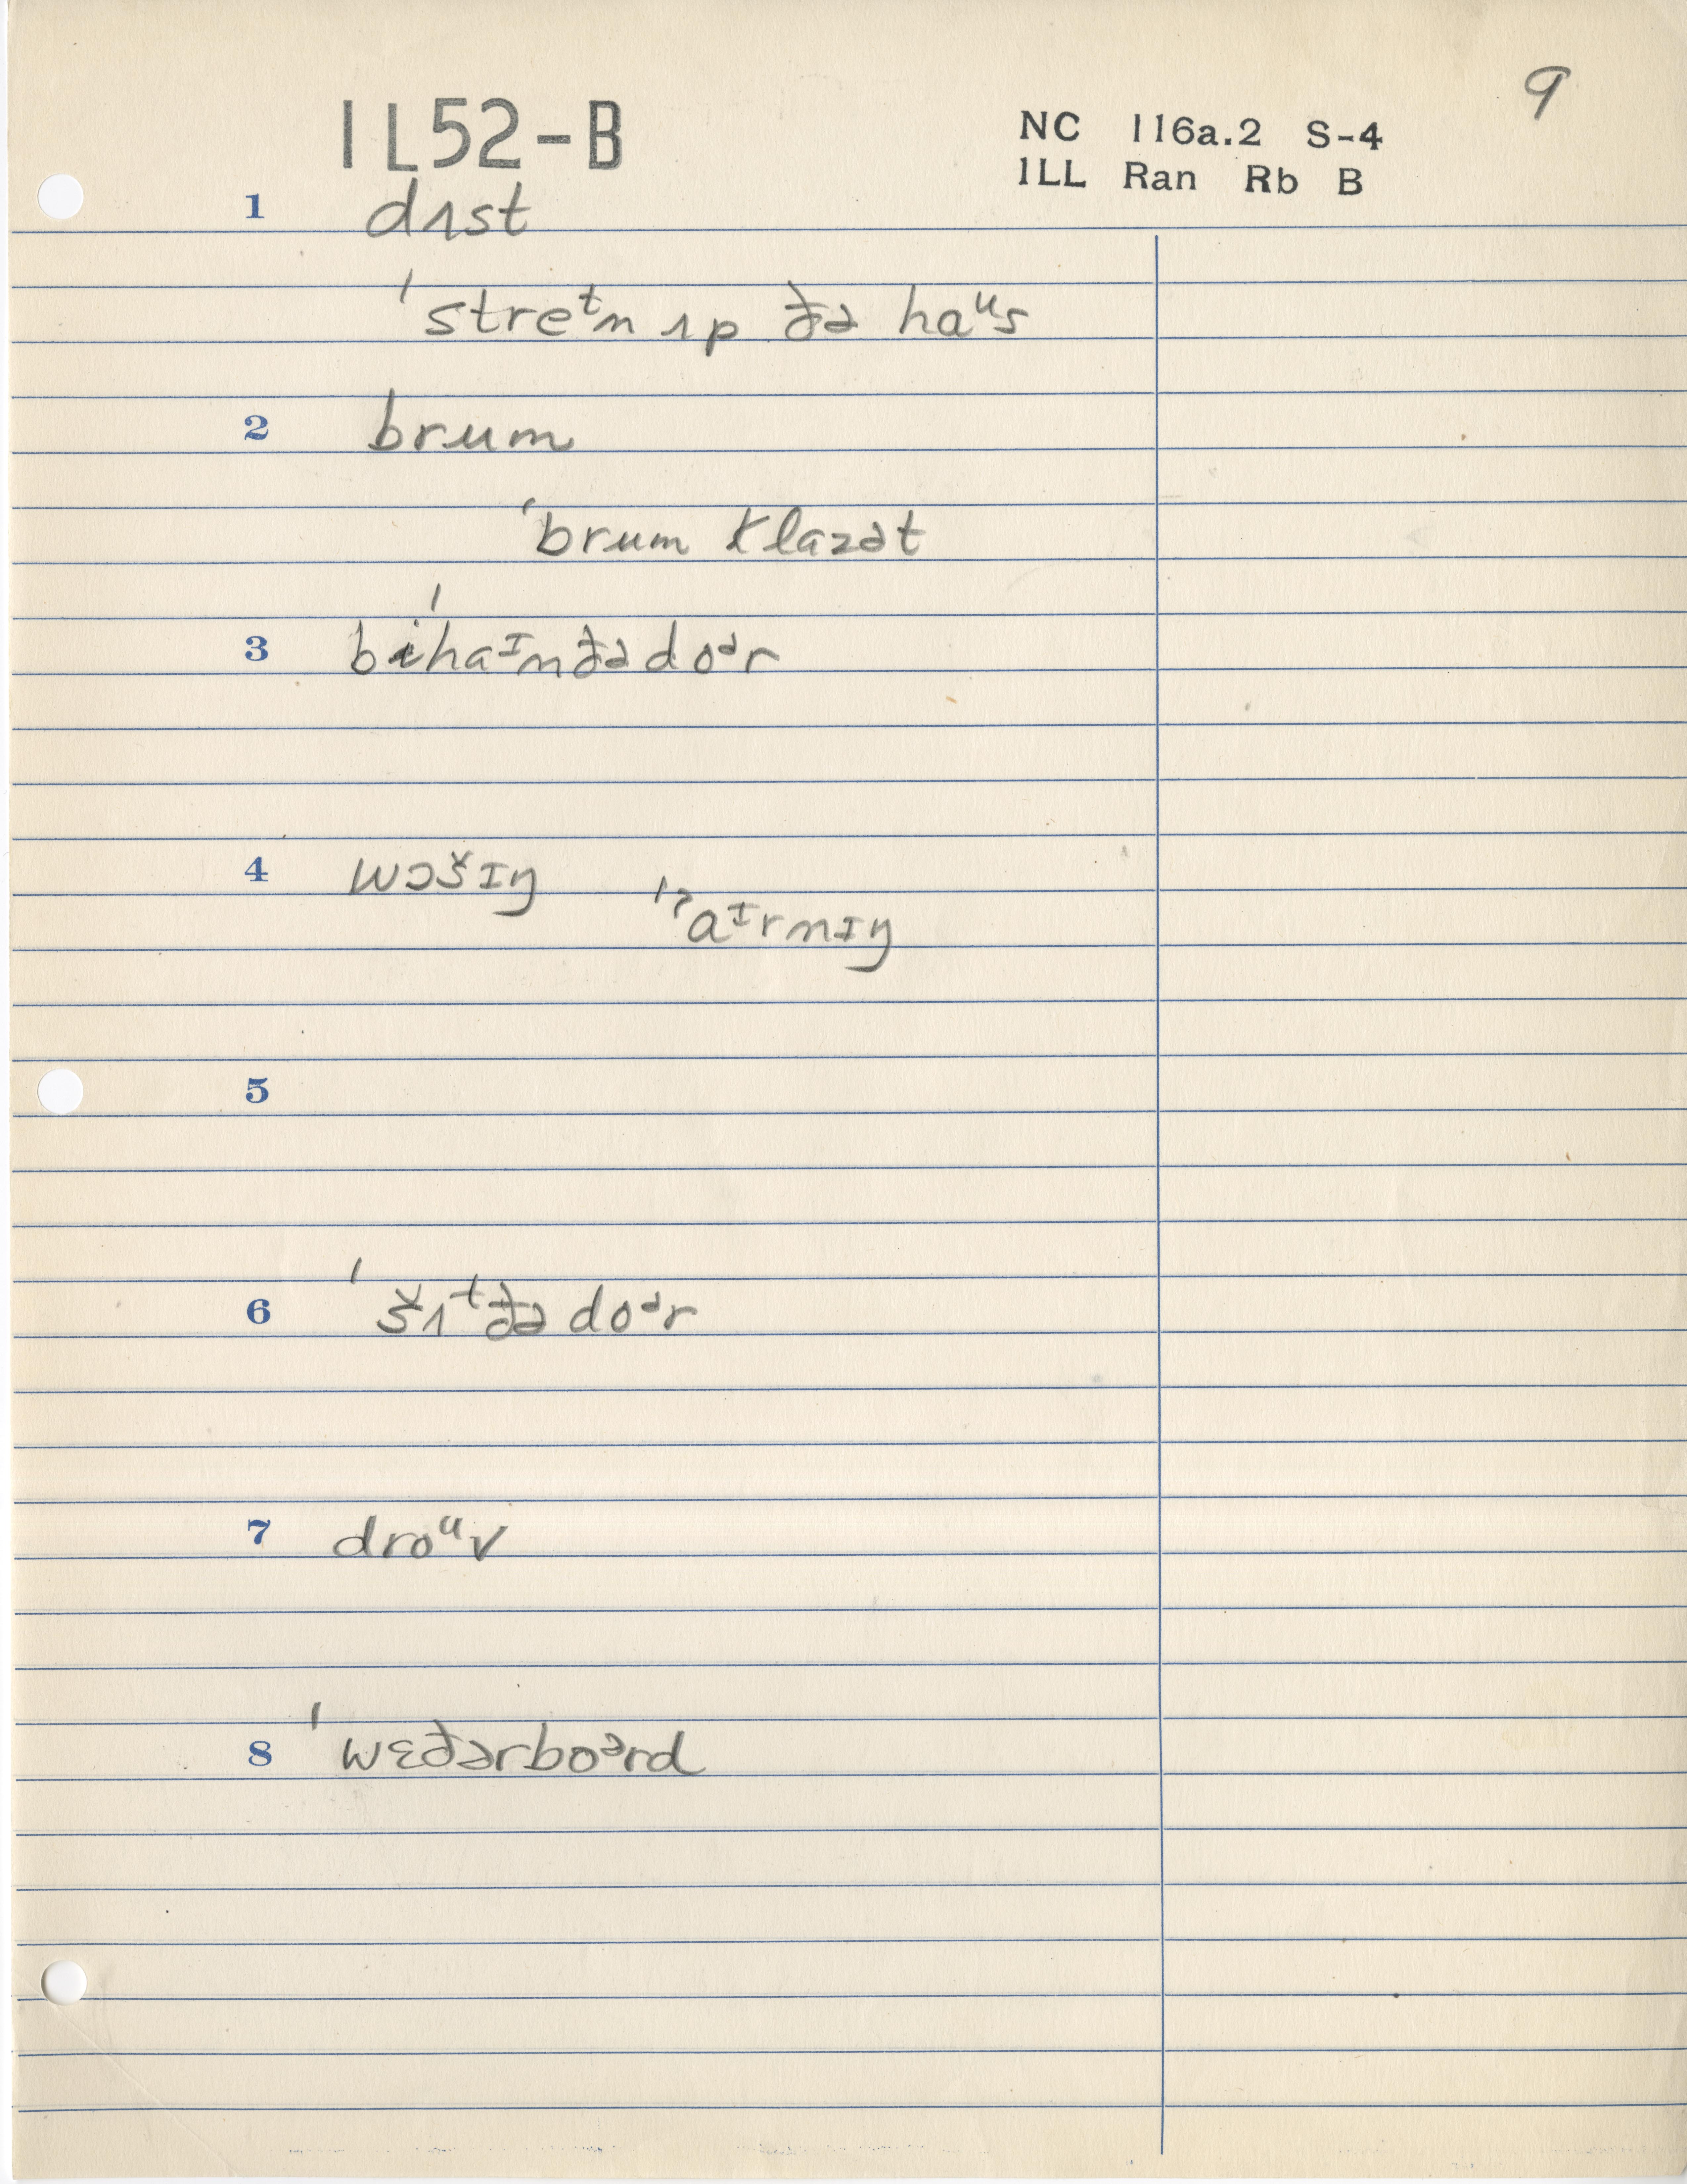 9
IL52-B
NC 116a.2 S-4
ILL Ran Rb B
1 dʌst
ˈstreᵗn ʌp ðə haᵘs
2 brum
ˈbrum klazət
3 bɨˈhaᶦn ðə doᵊr
4 wɔšɪŋ
ˈˀaᶦrnɪŋ
5
6 ˈšʌᵗ ðə doᵊr
7 droᵘv
8 ˈwɛðərboᵊrd